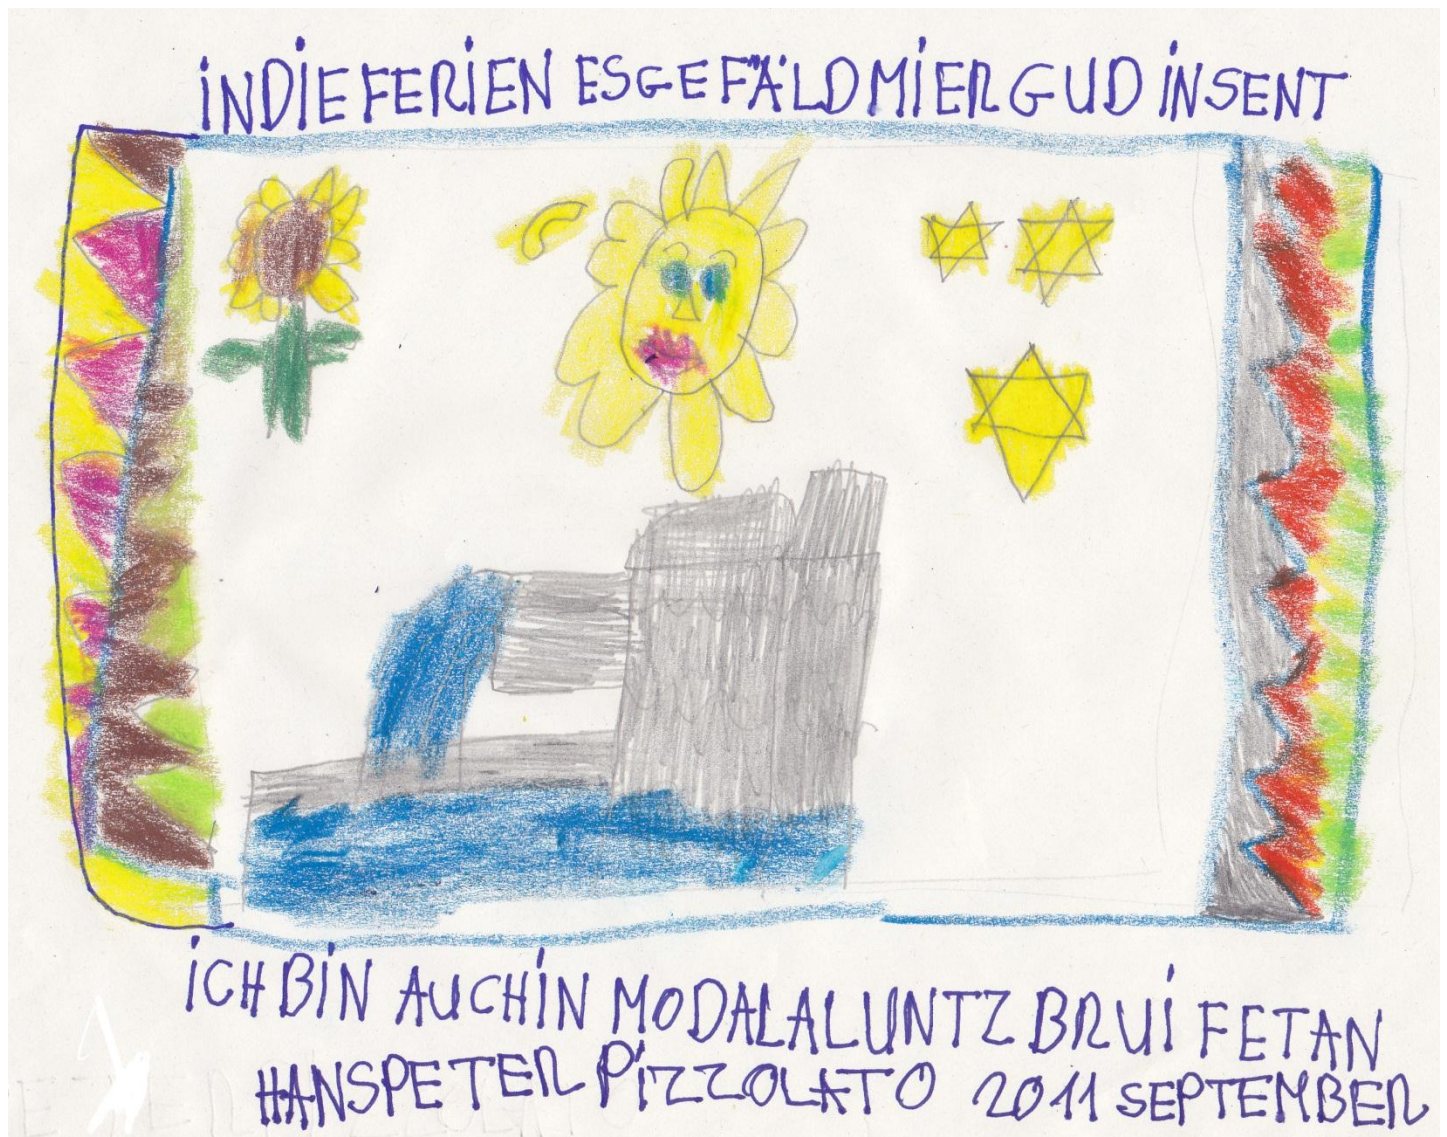 iNDIE FERiEN ESGEFÄLD MiER GUD iNSENT
iCH BiN AUCH iN MODALALUNTZ BRUi FETAN
HANSPETER PiZZOLATO 2011 SEPTEMBER